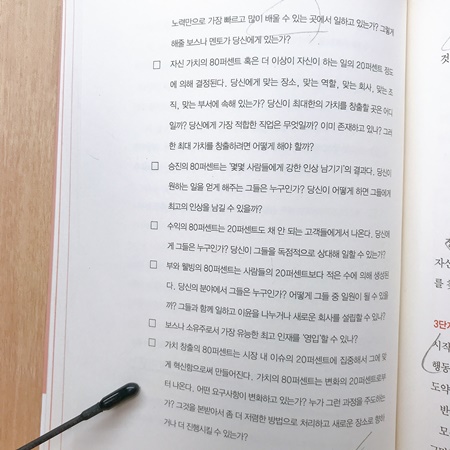 노력만으로 가장 빠르고 많이 배울 수 있는 곳에서 일하고 있는가? 그렇게
해줄 보스나 멘토가 당신에게 있는가?
□ 자신 가치의 80퍼센트 혹은 더 이상이 자신이 하는 일의 20퍼센트 정도
에 의해 결정된다. 당신에게 맞는 장소, 맞는 역할, 맞는 회사, 맞는 조
직, 맞는 부서에 속해 있는가? 당신이 최대한의 가치를 창출할 곳은 어디
일까? 당신에게 가장 적합한 직업은 무엇일까? 이미 존재하고 있나? 그러
한 최대 가치를 창출하려면 어떻게 해야 할까?
□ 승진의 80퍼센트는 '몇몇 사람들에게 강한 인상 남기기'의 결과다. 당신이
원하는 일을 얻게 해주는 그들은 누구인가? 당신이 어떻게 하면 그들에게
최고의 인상을 남길 수 있을까?
□ 수익의 80퍼센트는 20퍼센트도 채 안 되는 고객들에게서 나온다. 당신에
게 그들은 누구인가? 당신이 그들을 독점적으로 상대해 일할 수 있는가?
□ 부와 웰빙의 80퍼센트는 사람들의 20퍼센트보다 적은 수에 의해 생성된
다. 당신의 분야에서 그들은 누구인가? 어떻게 그들 중 일원이 될 수 있을
까? 그들과 함께 일하고 이윤을 나누거나 새로운 회사를 설립할 수 있나?
□ 보스나 소유주로서 가장 유능한 최고 인재를 '영입'할 수 있나?
□ 가치 창출의 80퍼센트는 시장 내 이슈의 20퍼센트에 집중해서 그에 맞
게 혁신함으로써 만들어진다. 가치의 80퍼센트는 변화의 20퍼센트로부
터 나온다. 어떤 요구사항이 변화하고 있는가? 누가 그런 과정을 주도하는
가? 그것을 본받아서 좀 더 저렴한 방법으로 처리하고 새로운 장소로 향하
거나 더 진행시킬 수 있는가?
자신
를 
3단계
시작
행동
도약
반
모